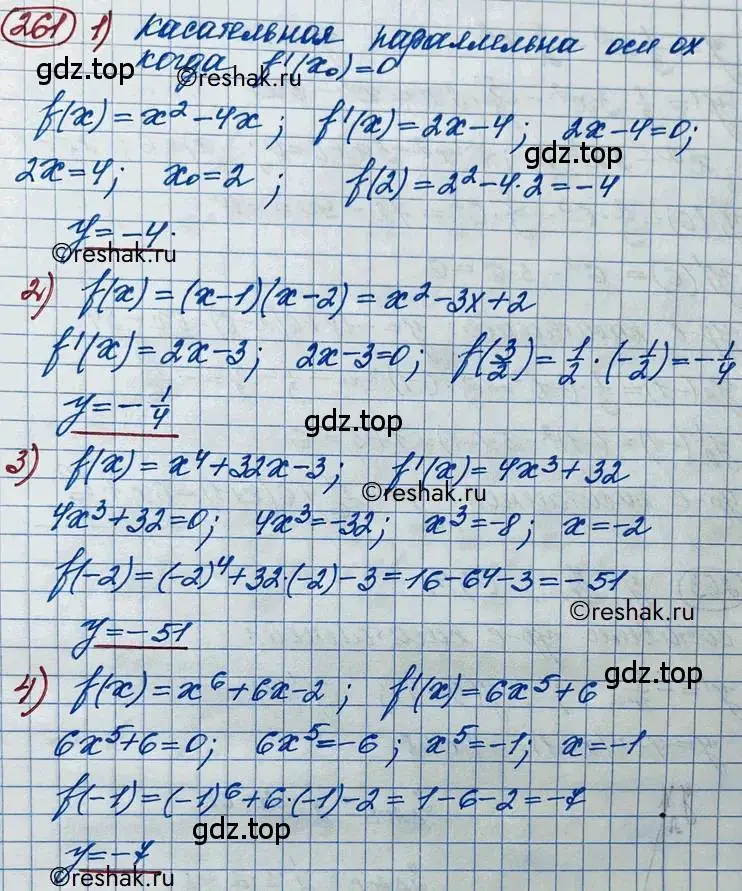 261 1) касательная параллельна оси ох
когда f'(x₀)=0
gdz.top
©reshak.ru
f(x)=x²-4x; f'(x)=2x-4; 2x-4=0;
gdz.top
2x=4; x₀=2; f(2)=2²-4·2=-4
©reshak.ru
y=-4.
©reshak.ru
2) f(x)=(x-1)(x-2)=x²-3x+2
f'(x)=2x-3; 2x-3=0; f(3/2)=1/2·(-1/2)=-1/4
y=-1/4
gdz.top
3) f(x)=x⁴+32x-3; f'(x)=4x³+32
©reshak.ru
4x³+32=0; 4x³=-32; x³=-8; x=-2
f(-2)=(-2)⁴+32·(-2)-3=16-64-3=-51
©reshak.ru
y=-51
gdz.top
4) f(x)=x⁶+6x-2; f'(x)=6x⁵+6
6x⁵+6=0; 6x⁵=-6; x⁵=-1; x=-1
f(-1)=(-1)⁶+6·(-1)-2=1-6-2=-7
gdz.top
y=-7
©reshak.ru